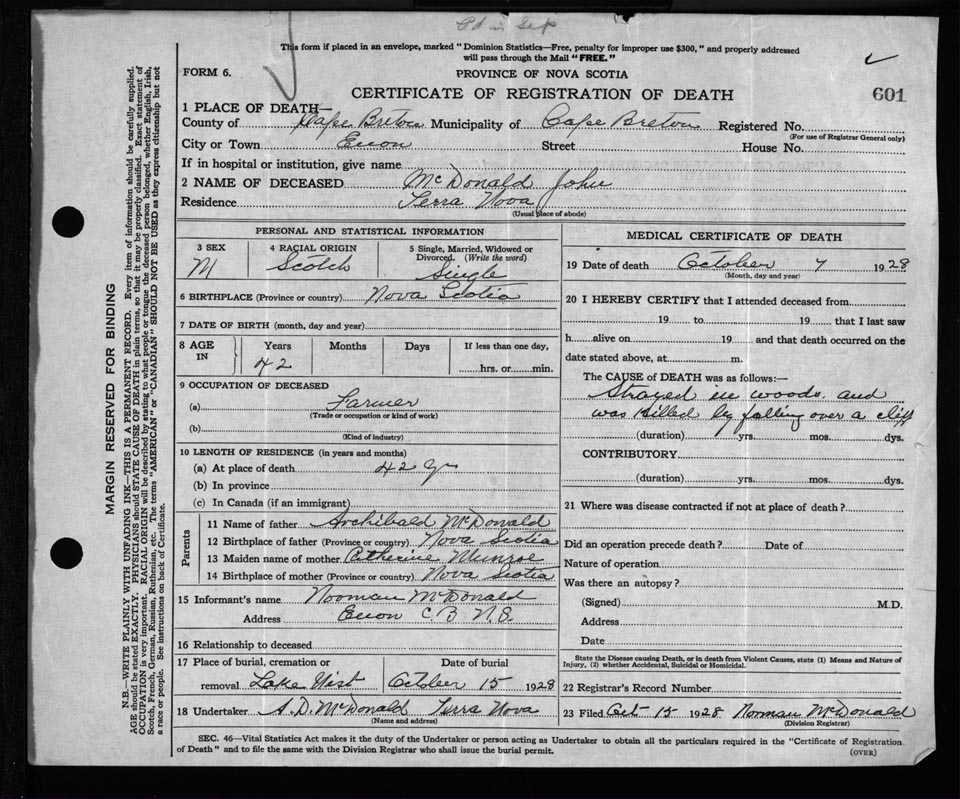 This form if placed in an envelope, marked "Dominion Statistics—Free, penalty for improper use $300," and properly addressed
will pass through the Mail "FREE."
FORM 6.
PROVINCE OF NOVA SCOTIA
CERTIFICATE OF REGISTRATION OF DEATH
601
1 PLACE OF DEATH—
County of Cape Breton Municipality of Cape Breton Registered No.
(For use of Registrar General only)
City or Town Enon Street House No.
If in hospital or institution, give name
2 NAME OF DECEASED McDonald John
Residence Terra Nova
(Usual place of abode)
PERSONAL AND STATISTICAL INFORMATION
3 SEX
M
4 RACIAL ORIGIN
Scotch
5 Single, Married, Widowed or
Divorced. (Write the word)
Single
6 BIRTHPLACE (Province or country) Nova Scotia
7 DATE OF BIRTH (month, day and year)
8 AGE
IN
Years Months Days If less than one day,
42
hrs. or min.
9 OCCUPATION OF DECEASED
(a) Farmer
(Trade or occupation or kind of work)
(b)
(Kind of industry)
10 LENGTH OF RESIDENCE (in years and months)
(a) At place of death 42 yr
(b) In province
(c) In Canada (if an immigrant)
Parents
11 Name of father Archibald McDonald
12 Birthplace of father (Province or country) Nova Scotia
13 Maiden name of mother Catherine Munroe
14 Birthplace of mother (Province or country) Nova Scotia
15 Informant's name Norman McDonald
Address Enon C.B N.S.
16 Relationship to deceased
17 Place of burial, cremation or
removal Lake Uist
Date of burial
October 15 1928
18 Undertaker A.D. McDonald Terra Nova
(Name and address)
MEDICAL CERTIFICATE OF DEATH
19 Date of death October 7 1928
(Month, day and year)
20 I HEREBY CERTIFY that I attended deceased from
19 to 19 that I last saw
h alive on 19 and that death occurred on the
date stated above, at m.
The CAUSE of DEATH was as follows:—
Strayed in woods and
was killed by falling over a cliff
(duration) yrs. mos. dys.
CONTRIBUTORY
(duration) yrs. mos. dys.
21 Where was disease contracted if not at place of death?
Did an operation precede death? Date of
Nature of operation
Was there an autopsy?
(Signed) M.D.
Address
Date
State the Disease causing Death, or in death from Violent Causes, state (1) Means and Nature of
Injury, (2) whether Accidental, Suicidal or Homicidal.
22 Registrar's Record Number
23 Filed Oct 15 1928 Norman McDonald
(Division Registrar)
SEC. 46—Vital Statistics Act makes it the duty of the Undertaker or person acting as Undertaker to obtain all the particulars required in the "Certificate of Registration
of Death" and to file the same with the Division Registrar who shall issue the burial permit.
(OVER)
MARGIN RESERVED FOR BINDING
N.B.—WRITE PLAINLY WITH UNFADING INK—THIS IS A PERMANENT RECORD. Every item of information should be carefully supplied.
AGE should be stated EXACTLY. PHYSICIANS should STATE CAUSE OF DEATH in plain terms, so that it may be properly classified. Exact statement of
OCCUPATION is very important. RACIAL ORIGIN will be described by stating to what people or tongue the deceased person belonged, whether English, Irish,
Scotch, French, German, Russian, Ruthenian, etc. The terms "AMERICAN" or "CANADIAN" SHOULD NOT BE USED as they express citizenship but not
a race or people. See instructions on back of Certificate.